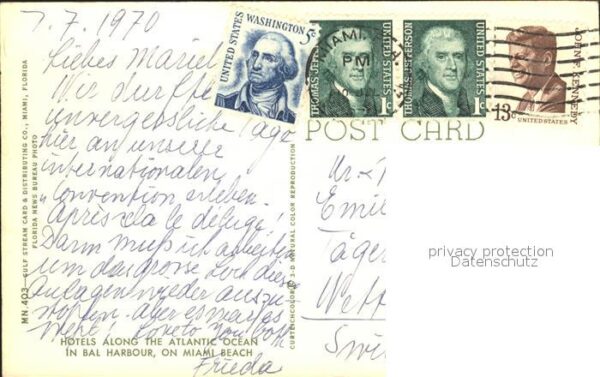 7.7.1970
Liebes Mariel
Wir durften
unvergessliche Tage
hier an unserer
internationalen
Convention erleben.
Après cela le déluge!
Dann muss ich arbeiten
um das grosse Loch dieser
Auslagen wieder auszu
stopfen. Aber es war es
wert! Love to you both
Frieda
HOTELS ALONG THE ATLANTIC OCEAN
IN BAL HARBOUR, ON MIAMI BEACH
MN.403—GULF STREAM CARD & DISTRIBUTING CO., MIAMI, FLORIDA
FLORIDA NEWS BUREAU PHOTO
CURTEICHCOLOR® 3-D NATURAL COLOR REPRODUCTION
UNITED STATES
WASHINGTON
5c
THOMAS JEFFERSON
UNITED STATES
1c
THOMAS JEFFERSON
UNITED STATES
1c
JOHN F. KENNEDY
13c
UNITED STATES
MIAMI, FL
PM
POST CARD
Mr. &
Emil
Jäger
Wett
Swi
privacy protection
Datenschutz